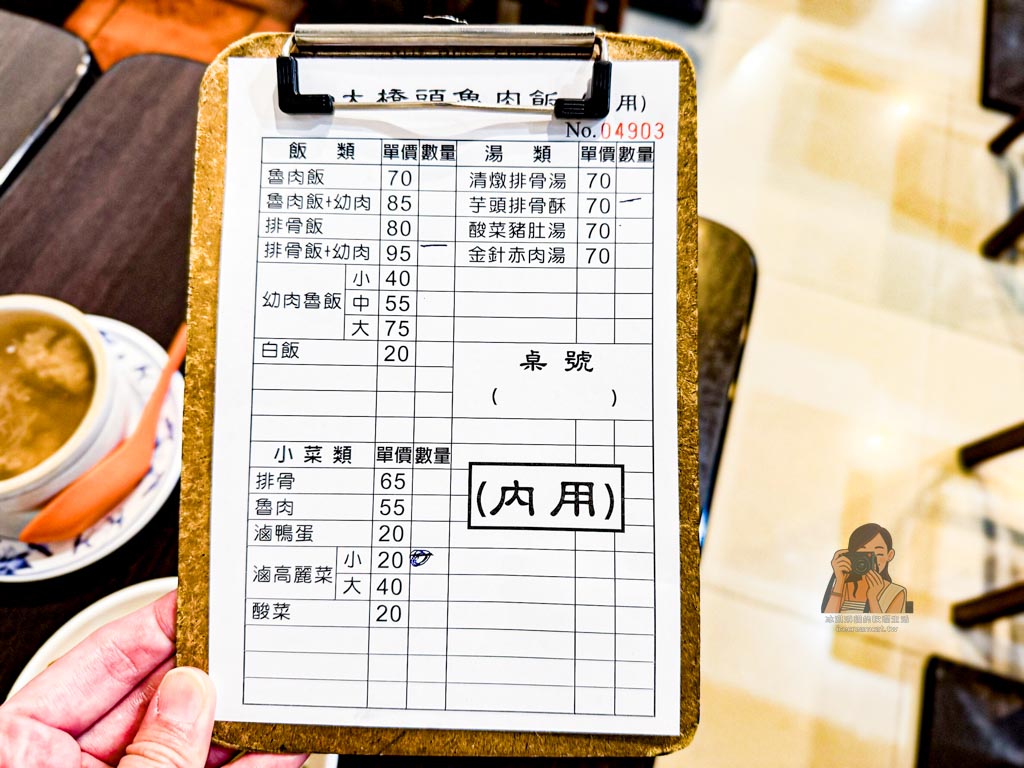 大橋頭魯肉飯 用)
No.04903
飯 類 單價 數量 湯 類 單價 數量
魯肉飯 70 清燉排骨湯 70
魯肉飯+幼肉 85 芋頭排骨酥 70 一
排骨飯 80 酸菜豬肚湯 70
排骨飯+幼肉 95 一 金針赤肉湯 70
幼肉魯飯 小 40
中 55
大 75
白飯 20
桌 號
( )
小 菜 類 單價 數量
排骨 65
魯肉 55
(內用)
滷鴨蛋 20
滷高麗菜 小 20
大 40
酸菜 20
icecreamcat.tw